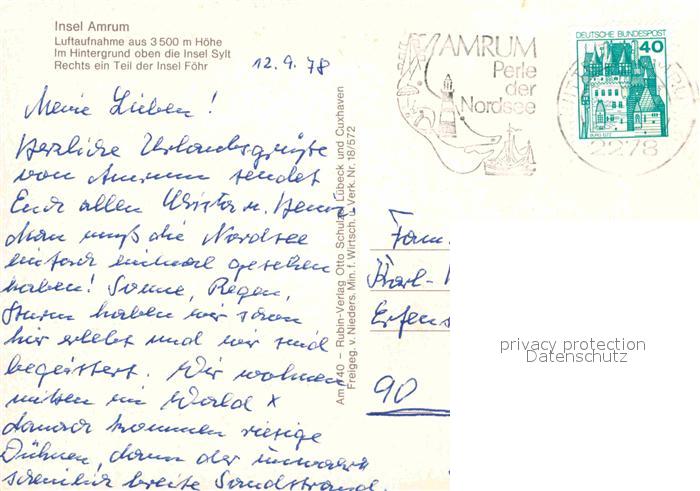 Insel Amrum
Luftaufnahme aus 3 500 m Höhe
Im Hintergrund oben die Insel Sylt
Rechts ein Teil der Insel Föhr
12.9.78
AMRUM
Perle
der
Nordsee
DEUTSCHE BUNDESPOST
40
BURG ELTZ
2278
Meine Lieben!
Herzliche Urlaubsgrüße
von Amrum sendet
Euch allen Christa u. Heinz.
Man muß die Nordsee
einfach einmal gesehen
haben! Sonne, Regen,
Sturm haben wir schon
hier erlebt und wir sind
begeistert. Wir wohnen
mitten im Wald x
danach kommen riesige
Dühnen, dann der
breite Sandstrand.
Am 740 – Rubin-Verlag Otto Schulze, Lübeck und Cuxhaven
Freigeg. v. Nieders. Min. f. Wirtsch. u. Verk. Nr. 18/572
Fam.
Karl-
90
privacy protection
Datenschutz